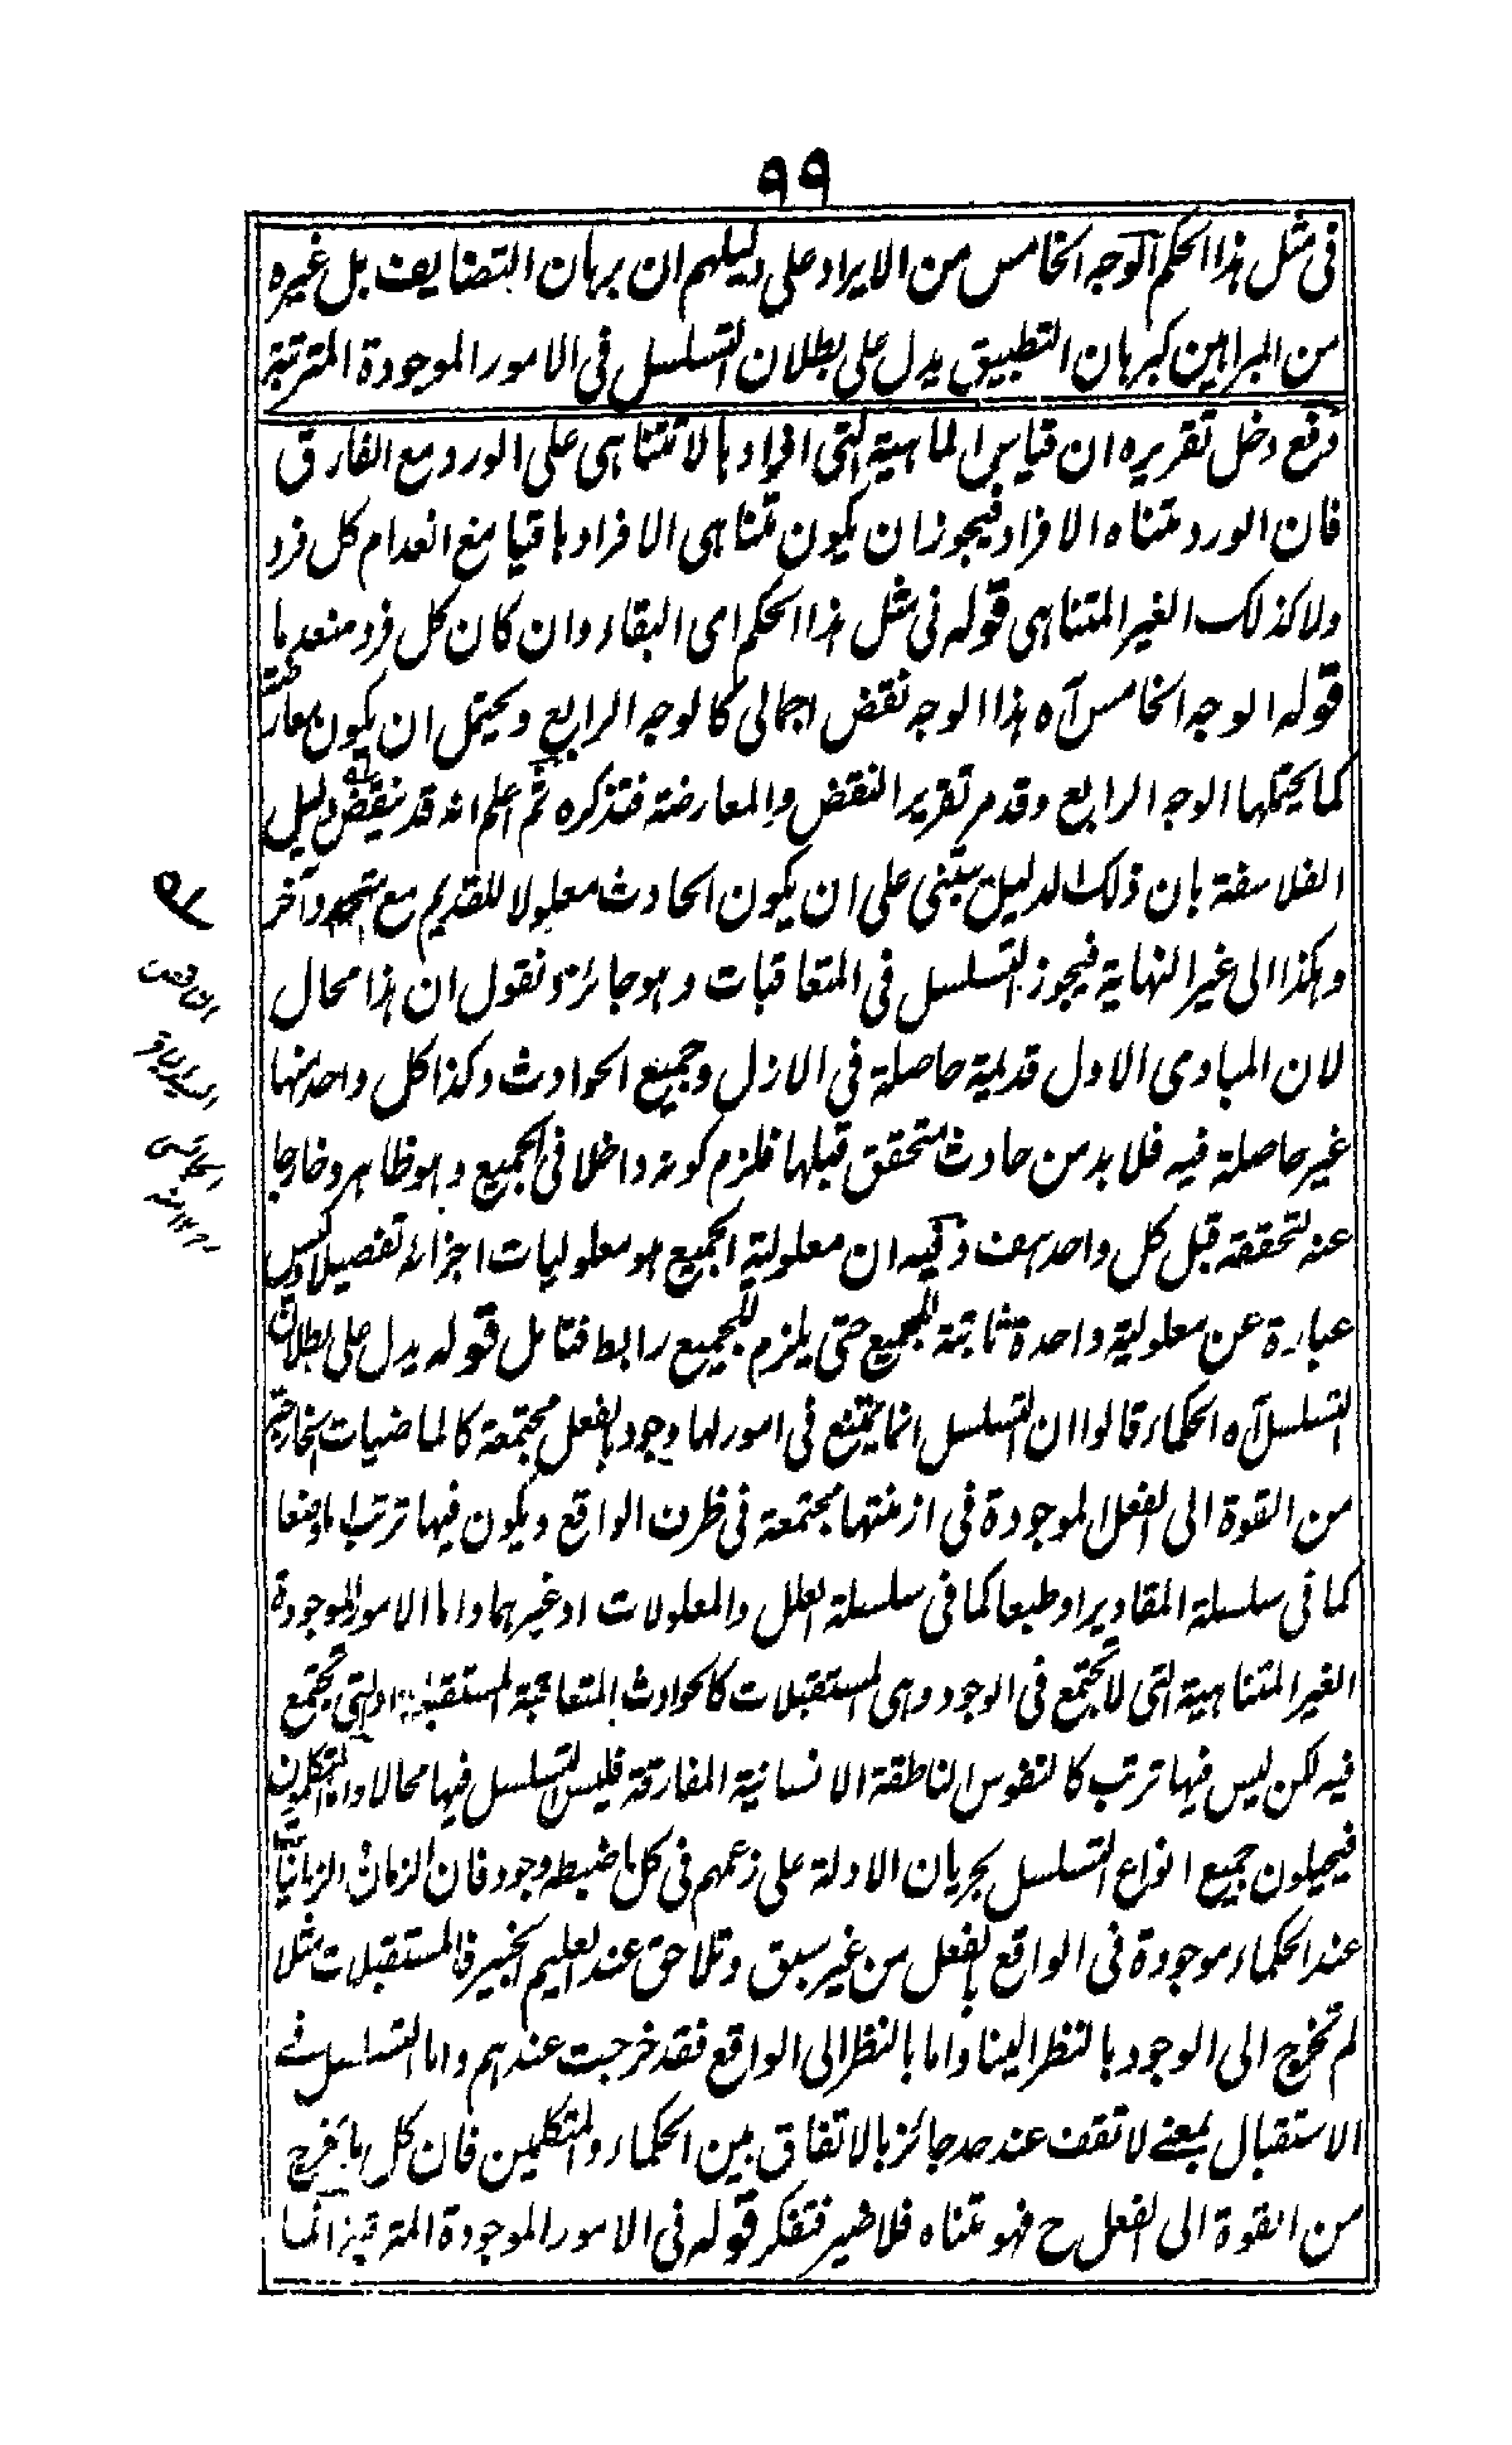 ٩٩
فى مثل هذا الحكم الوجه الخامس من الايراد على دليلهم ان برهان التضايف بل غيره
من البراهين كبرهان التطبيق يدل على بطلان التسلسل فى الامور الموجودة المترتبة
دفع دخل تقريره ان قياس الماهية التى افرادها لا تتناهى على الورد مع الفارق
فان الورد متناه الافراد فيجوز ان يكون تناهى الافراد باقيا مع انعدام كل فرد
ولا كذلك الغير المتناهى قوله فى مثل هذا الحكم اى البقاء وان كان كل فرد منعدما
قوله الوجه الخامس آه هذا الوجه نقض اجمالى كالوجه الرابع ويحتمل ان يكون معارضة
كما يحتملها الوجه الرابع وقد مر تقرير النقض والمعارضة فتذكره ثم اعلم انه قد ينقض دليل
الفلاسفة بان ذلك الدليل يبتنى على ان يكون الحادث معلولا للقديم مع متجدد آخر
وهكذا الى غير النهاية فيجوز التسلسل فى المتعاقبات وهو جائز ونقول ان هذا محال
لان المبادى الاول قديمة حاصلة فى الازل وجميع الحوادث وكذا كل واحد منها
غير حاصلة فيه فلا بد من حادث متحقق قبلها فلزم كونه داخلا فى الجميع وهو ظاهر وخارجا
عنه لتحققه قبل كل واحد هف وفيه ان معلولية الجميع هو معلوليات اجزائه تفصيلا وليس
عبارة عن معلولية واحدة ثابتة للجميع حتى يلزم للجميع رابط فتامل قوله يدل على بطلان
التسلسل آه الحكماء قالوا ان التسلسل انما يمتنع فى امور لها وجود بالفعل مجتمعة كالماضيات الخارجة
من القوة الى الفعل الموجودة فى ازمنتها مجتمعة فى ظرف الواقع ويكون فيها ترتب اما وضعا
كما فى سلسلة المقادير او طبعا كما فى سلسلة العلل والمعلولات او غيرهما واما الامور الموجودة
الغير المتناهية التى لا تجتمع فى الوجود وهى المستقبلات كالحوادث المتعاقبة المستقبلة او التى تجتمع
فيه لكن ليس فيها ترتب كالنفوس الناطقة الانسانية المفارقة فليس التسلسل فيها محالا واما المتكلمون
فيحيلون جميع انواع التسلسل بجريان الادلة على زعمهم فى كل ما ضبطه وجود فان الزمان والزمانيات
عند الحكماء موجودة فى الواقع بالفعل من غير سبق وتلاحق عند العليم الخبير فالمستقبلات مثلا
لم تخرج الى الوجود بالنظر الينا واما بالنظر الى الواقع فقد خرجت عندهم واما التسلسل فى
الاستقبال بمعنى لا تقف عند حد جائز بالاتفاق بين الحكماء والمتكلمين فان كل ما يخرج
من القوة الى الفعل ح فهو متناه فلا ضير فتفكر قوله فى الامور الموجودة المترتبة انما